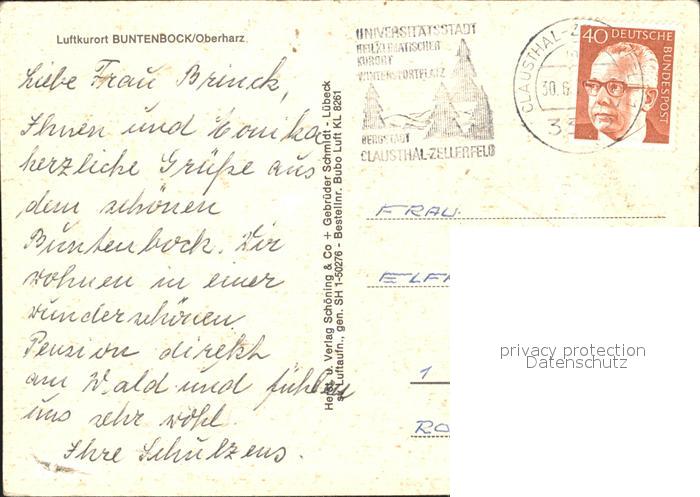 Luftkurort BUNTENBOCK/Oberharz
Liebe Frau Brinck,
Ihnen und Monika
herzliche Grüße aus
dem schönen
Buntenbock. Wir
wohnen in einer
wunderschönen
Pension direkt
am Wald und fühlen
uns sehr wohl.
Ihre Schulzens.
Herst. u. Verlag Schöning & Co + Gebrüder Schmidt - Lübeck
Luftaufn., gen. SH 1-50276 - Bestellnr. Bubo Luft KL 8261
UNIVERSITÄTSSTADT
HEILKLIMATISCHER
KURORT
WINTERSPORTPLATZ
BERGSTADT
CLAUSTHAL-ZELLERFELD
CLAUSTHAL-Z
30.6.
40 DEUTSCHE
BUNDESPOST
FRAU
ELF
1
RO
privacy protection
Datenschutz